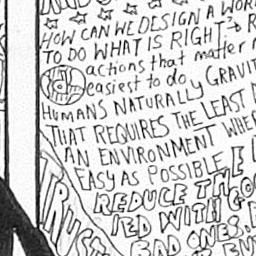 HOW CAN WE DESIGN A WOR
TO DO WHAT IS RIGHT?
actions that matter
easiest to do
GRAVIT
HUMANS NATURALLY
THAT REQUIRES THE LEAST
AN ENVIRONMENT WHE
EASY AS POSSIBLE
REDUCE THE
IED WITH GO
BAD ONES.
TRUST